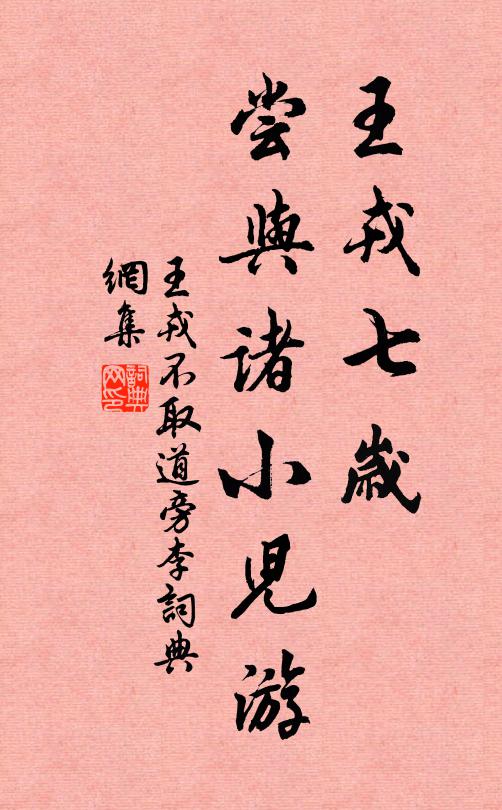 王戎七歲
嘗與諸小兒游
王戎不取道旁李詞典
網集
詞典
网印